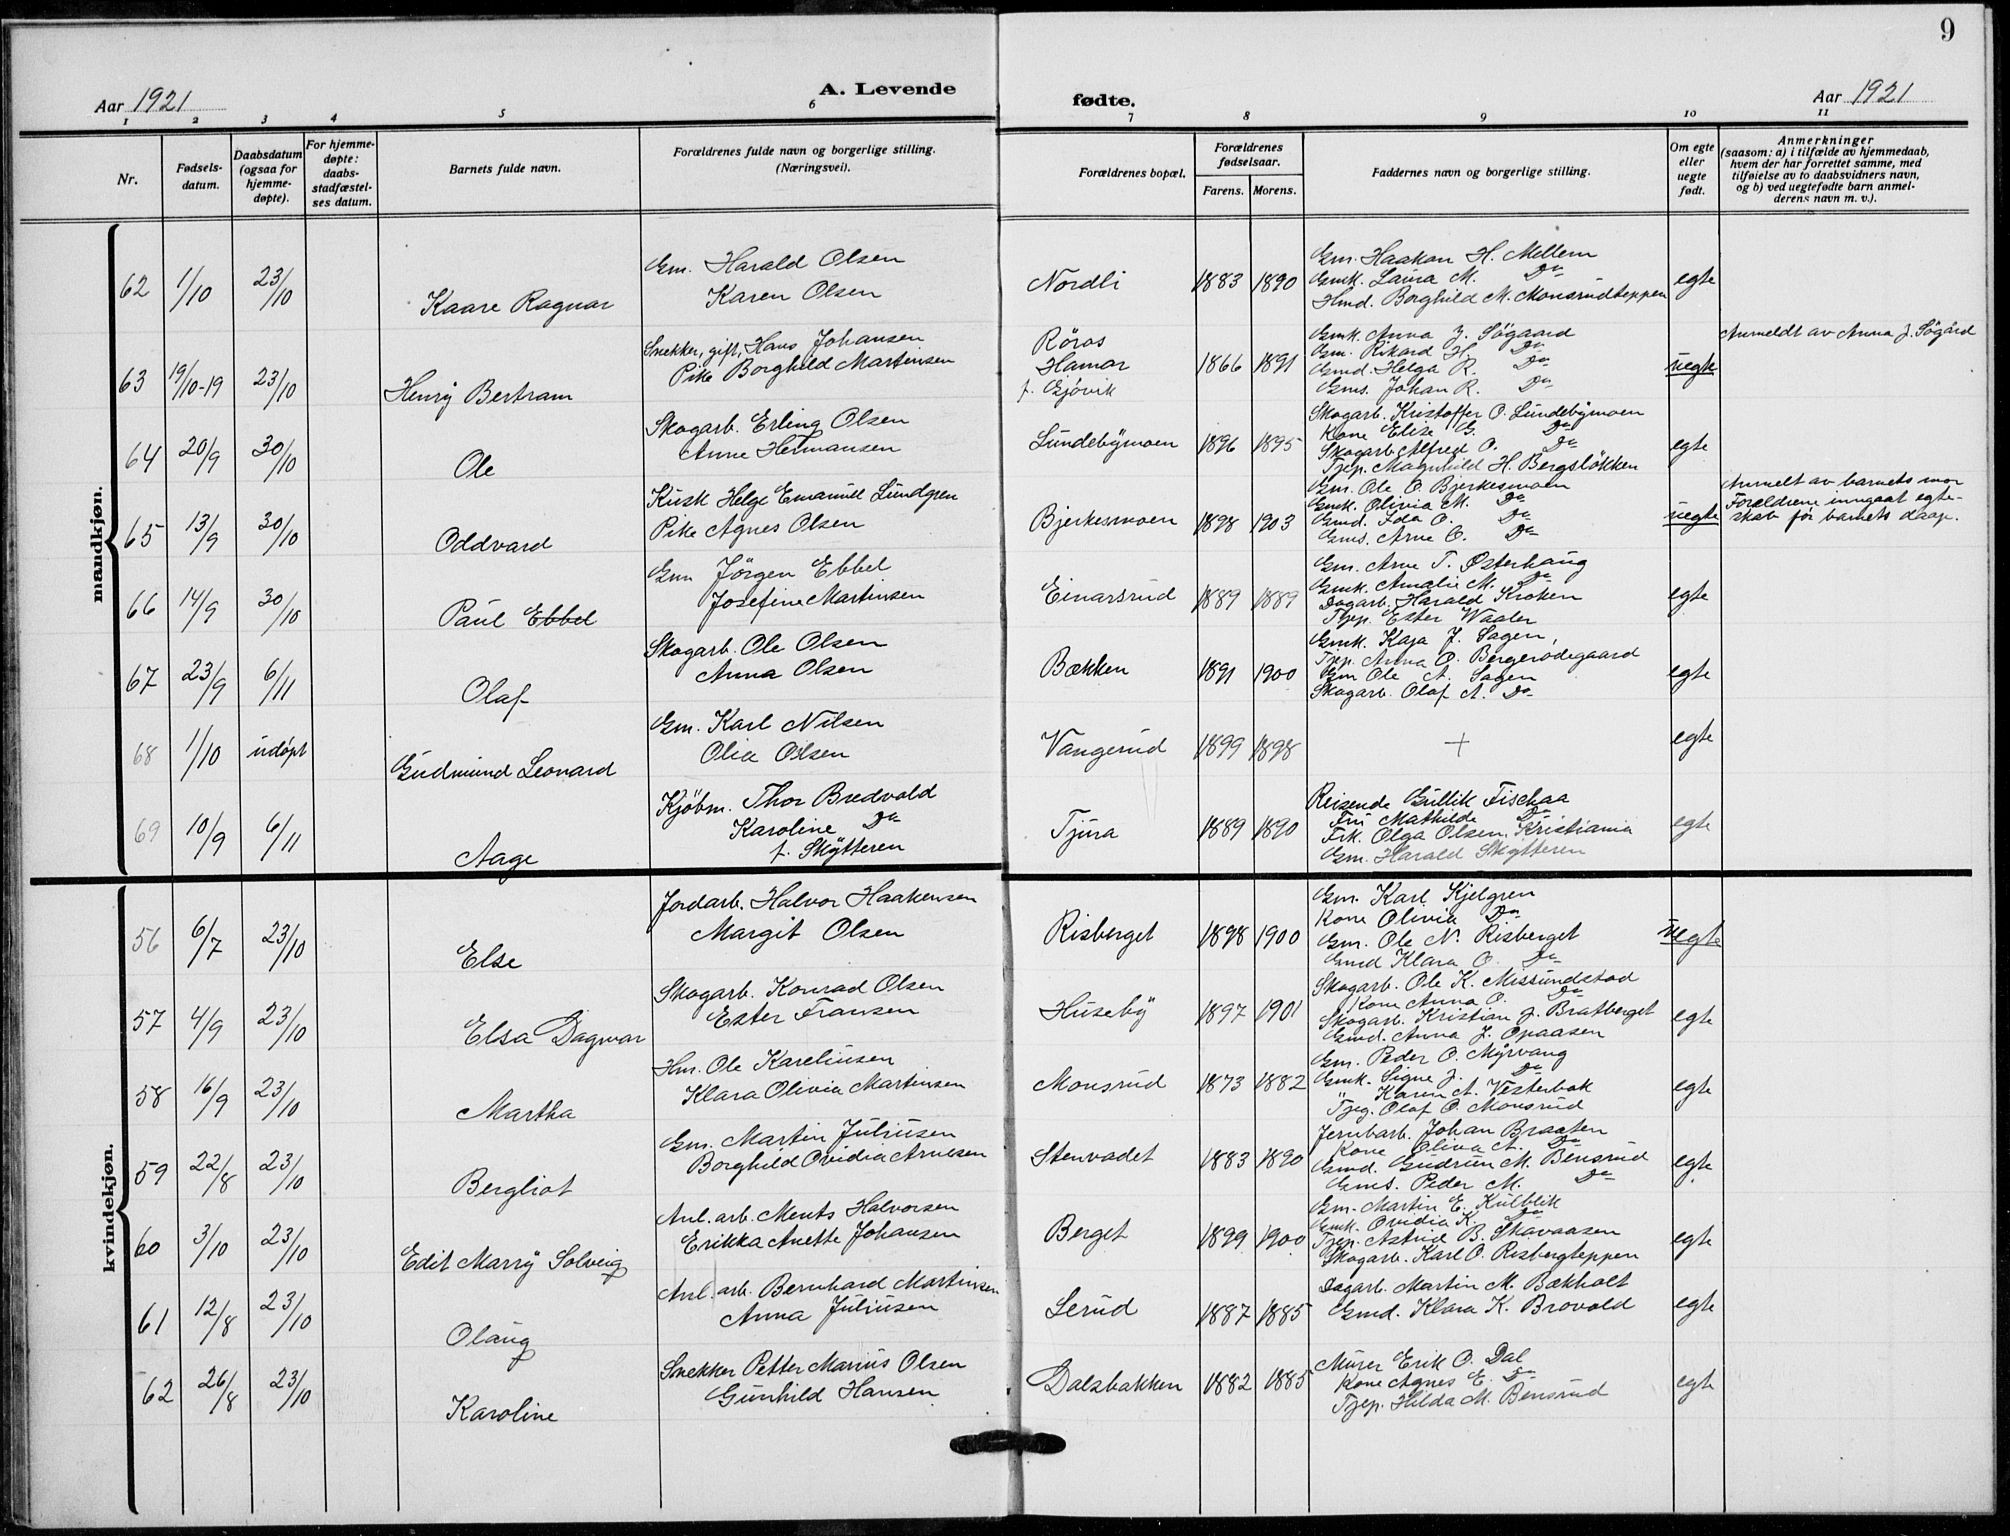 9
Aar 1921
A. Levende
fødte.
Aar 1921
1 2 3 4 5 6 7 8 9 10 11
Nr.
Fødsels-
datum.
Daabsdatum
(ogsaa for
hjemme-
døpte).
For hjemme-
døpte:
daabs-
stadfæstel-
ses datum.
Barnets fulde navn.
Forældrenes fulde navn og borgerlige stilling.
(Næringsvei).
Forældrenes bopæl.
Forældrenes
fødselsaar.
Farens. Morens.
Faddernes navn og borgerlige stilling.
Om egte
eller
uegte
født.
Anmerkninger
(saasom: a) i tilfælde av hjemmedaab,
hvem der har forrettet samme, med
tilføielse av to daabsvidners navn,
og b) ved uegtefødte barn anmel-
derens navn m. v.).
mandkjøn.
62 1/10 23/10 Kaare Ragnar
Gm. Harald Olsen
Karen Olsen
Nordli 1883 1890
Gm. Haakon H. Mellem
Gmk. Laura M. Do
Hmd. Borghild M. Monsrudteppen
egte
63 19/10-19 23/10 Henry Bertram
Snekker, gift, Hans Johansen
Pike Borghild Martinsen
Röros
Hamar
f. Gjövik
1866 1891
Gmk. Anna J. Sögaard
Gm. Rikard H. Do
Gmd. Helga R. Do
Gms. Johan R. Do
uegte
Anmeldt av Anna J. Sögård
64 20/9 30/10 Ole
Skogarb. Erling Olsen
Anne Hermansen
Lundebymoen 1896 1895
Skogarb. Kristoffer O. Lundebymoen
Kone Elise G. Do
Skogarb. Alfred O. Do
Tjep. Magnhild H. Bergslökken
egte
65 13/9 30/10 Oddvard
Kusk Helge Emanuel Lundgren
Pike Agnes Olsen
Bjerkesmoen 1898 1903
Gm. Ole O. Bjerkesmoen
Gmk. Olivia M. Do
Gmd. Ida O. Do
Gms. Arne O. Do
uegte
Anmelt av barnets mor
Forældrene inngaat egte-
skab før barnets daap.
66 14/9 30/10 Paul Ebbel
Gm Jörgen Ebbel
Josefine Martinsen
Einarsrud 1889 1889
Gm. Arne T. Østerhaug
Gmk. Amalie M. Do
Dagarb. Harald Kroken
Tjep. Ester Waaler
egte
67 23/9 6/11 Olaf
Skogarb. Ole Olsen
Anna Olsen
Bækken 1891 1900
Gmk. Kaja J. Sagen,
Tjep. Anna O. Bergerødegaard
Gm Ole A. Sagen
Skogarb. Olaf A. Do
egte
68 1/10 udöpt Gudmund Leonard
Gm. Karl Nilsen
Olia Olsen
Vangerud 1899 1898
+
egte
69 10/9 6/11 Aage
Kjöbm. Thor Bredvold
Karoline Do
f. Skytteren
Tjura 1889 1890
Reisende Gullik Fischaa
Fru Mathilde Do
Frk. Olga Olsen, Kristiania
Gm. Harald Skytteren
egte
kvindekjøn.
56 6/7 23/10 Else
Jordarb. Halvor Haakensen
Margit Olsen
Risberget 1898 1900
Gm. Karl Kjelgren
Kone Olivia Do
Gm. Ole N. Risberget
Gmd Klara O. Do
uegte
57 4/9 23/10 Elsa Dagmar
Skogarb. Konrad Olsen
Ester Fransen
Huseby 1897 1901
Skogarb. Ole K. Missundstad
Kone Anna O. Do
Skogarb. Kristian J. Bratberget
Gmd. Anna J. Opaasen
egte
58 16/9 23/10 Martha
Hm. Ole Kareliusen
Klara Olivia Martinsen
Monsrud 1873 1882
Gm. Peder O. Myrvang
Gmk. Signe J. Do
" Karen A. Vesterbak
Tjeg. Olaf O. Monsrud
egte
59 22/8 23/10 Bergliot
Gm. Martin Juliusen
Borghild Ovidia Arnesen
Stenvadet 1883 1890
Jernbarb. Johan Braaten
Kone Oliva A. Do
Gmd. Gudrun M. Bensrud
Gms. Peder M. Do
egte
60 3/10 23/10 Edit Marry Solveig
Anl. arb. Ments Halvorsen
Erikka Anette Johansen
Berget 1899 1900
Gm. Martin E. Kulblik
Gmk. Ovidia K. Do
Tjep. Astrid B. Skavaasen
Skogarb. Karl O. Risbergteppen
egte
61 12/8 23/10 Olaug
Anl. arb. Bernhard Martinsen
Anna Juliusen
Lerud 1887 1885
Dagarb. Martin M. Bækholt
Gmd. Klara K. Brovold
egte
62 26/8 23/10 Karoline
Snekker Petter Marius Olsen
Gunhild Hansen
Dalsbakken 1882 1885
Murer Erik O. Dal
Kone Agnes E. Do
Tjep. Hilda M. Bensrud
egte